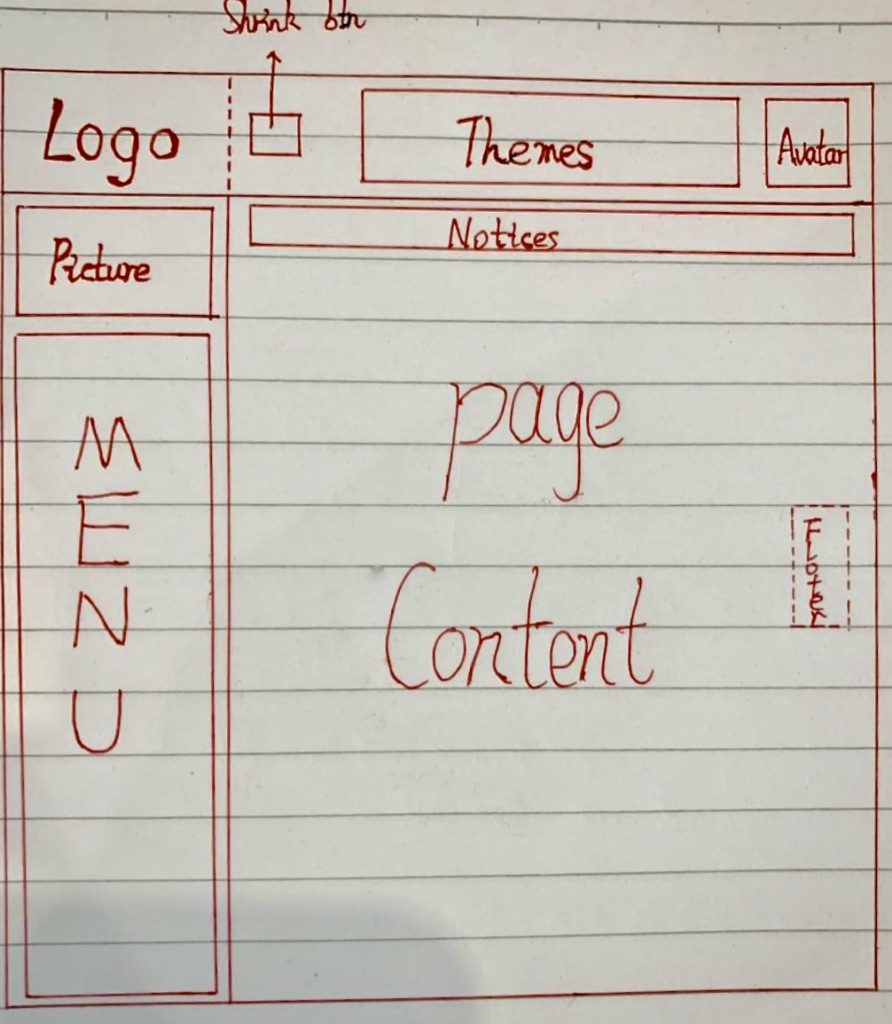 Shrink btn
Logo
Themes
Avatar
Picture
Notices
MENU
page
Content
Floter